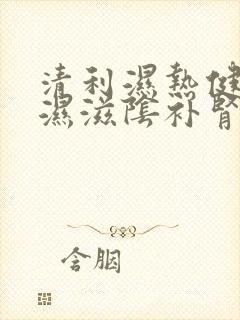 清利濕熱健
濕滋陰补腎
含胭